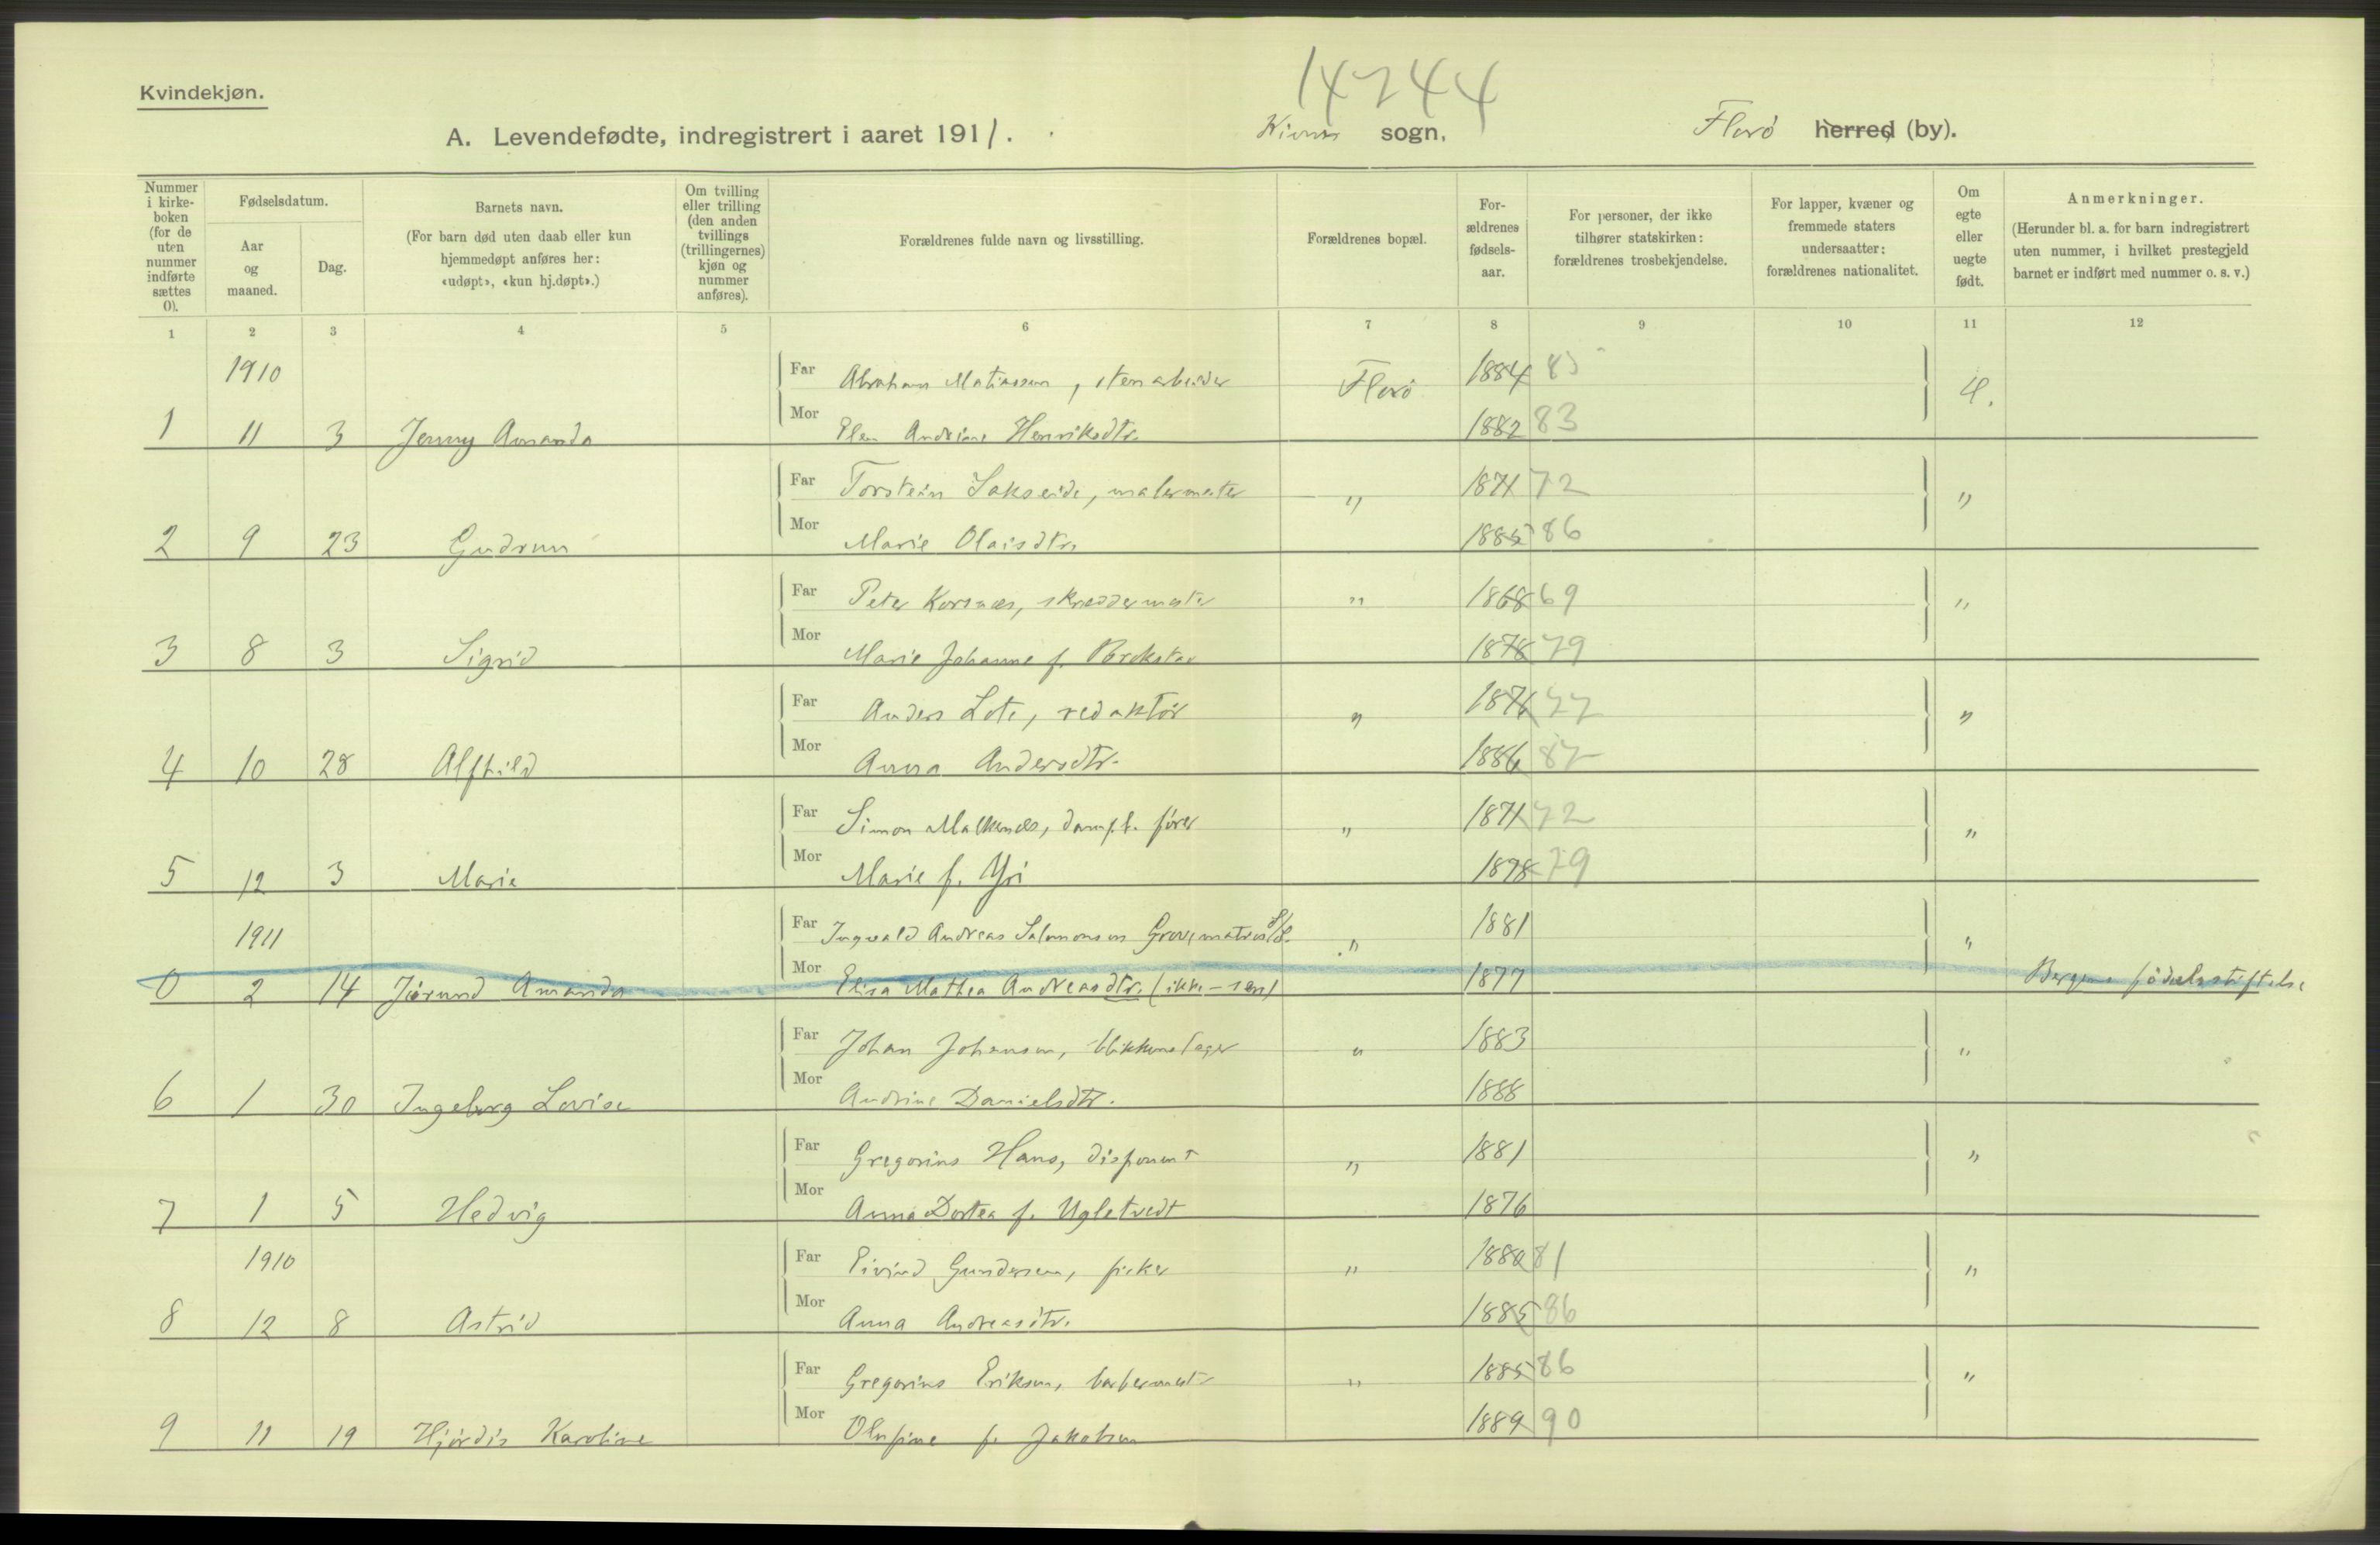 14244
Kvindekjøn.
A. Levendefødte, indregistrert i aaret 1911. Kinn sogn, Florø herred (by).
Nummer i kirkeboken (for de uten nummer indførte sættes 0).
Fødselsdatum.
Aar og maaned.
Dag.
Barnets navn.
(For barn død uten daab eller kun hjemmedøpt anføres her: «udøpt», «kun hj.døpt».)
Om tvilling eller trilling (den anden tvillings (trillingernes) kjøn og nummer anføres).
Forældrenes fulde navn og livsstilling.
Forældrenes bopæl.
Forældrenes fødselsaar.
For personer, der ikke tilhører statskirken: forældrenes trosbekjendelse.
For lapper, kvæner og fremmede staters undersaatter: forældrenes nationalitet.
Om egte eller uegte født.
Anmerkninger.
(Herunder bl. a. for barn indregistrert uten nummer, i hvilket prestegjeld barnet er indført med nummer o. s. v.)
1 2 3 4 5 6 7 8 9 10 11 12
1910 Far Abraham Matiassen, stenarbeider Florø 1884 85 Æ.
1 11 3 Jenny Amanda Mor Elen Andrine Henriksdtr. 1882 83
Far Torstein Sakseide, malermester " 1871 72 "
2 9 23 Gudrun Mor Marie Olaisdtr. 1885 86
Far Peter Korsnes, skreddermester " 1868 69 "
3 8 3 Sigrid Mor Marie Johanne f. 1878 79
Far Anders Lote, redaktør " 1876 77 "
4 10 28 Alfhild Mor Anna Andersdtr. 1886 87
Far Simon Malkenes, dampb. fører " 1871 72 "
5 12 3 Marie Mor Marie f. Yri 1878 79
1911 Far Ingvald Andreas Salomonsen Grov, matros " 1881 "
0 2 14 Jørund Amanda Mor Elisa Mathea Andreasdtr. (ikke -sen) 1877 Bergens fødselsstiftelse
Far Johan Johansen, blikkenslager " 1883 "
6 1 30 Ingeborg Lovise Mor Andrine Danielsdtr. 1888
Far Gregorius Hans, disponent " 1881 "
7 1 5 Hedvig Mor Anna Dortea f. Ugletvedt 1876
1910 Far Eivind Gundersen, fisker " 1880 81 "
8 12 8 Astrid Mor Anna Andreasdtr. 1885 86
Far Gregorius Eriksen, barbermestr " 1885 86 "
9 11 19 Hjørdis Karoline Mor Olufine f. Jakobsen 1889 90